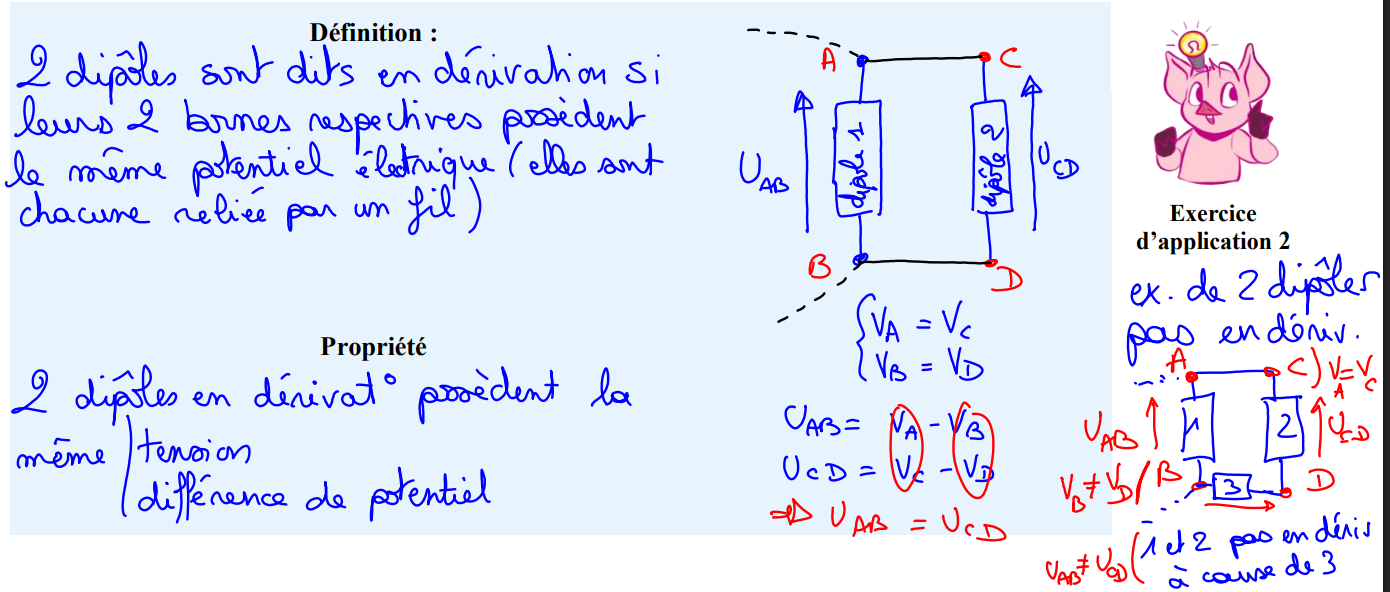 Définition :
2 dipôles sont dits en dérivation si
leurs 2 bornes respectives possèdent
le même potentiel électrique (elles sont
chacune reliée par un fil)
Propriété
2 dipôles en dérivat° possèdent la
même
tension
différence de potentiel
A
C
U_AB
dipôle 1
dipôle 2
U_CD
B
D
V_A = V_C
V_B = V_D
U_AB = V_A - V_B
U_CD = V_C - V_D
⇒ U_AB = U_CD
Exercice
d'application 2
ex. de 2 dipôles
pas en dériv.
A
C) V_A = V_C
U_AB
1
2
U_CD
V_B ≠ V_D / B
3
D
U_AB ≠ U_CD (1 et 2 pas en dériv
à cause de 3